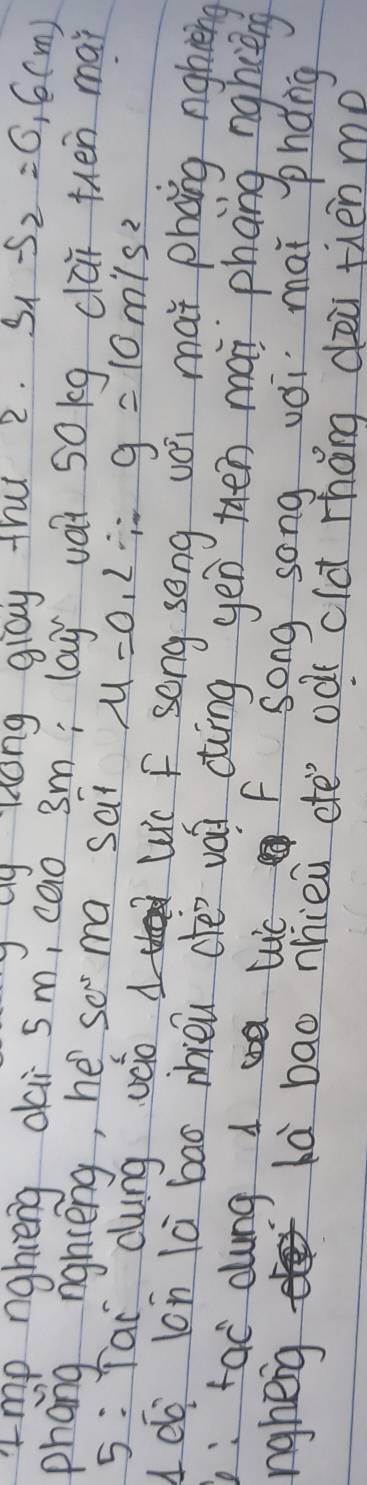 trong giây thứ 2. S1 - S2 = 0,6(m)
1 mp nghiêng dài 5m, cao 3m; lấy vật 50kg đặt trên mặt
phẳng nghiêng, hệ số ma sát μ = 0,2; g = 10 m/s²
5: Tác dụng vào 1 lực F song song với mặt phẳng nghiêng
1 độ lớn là bao nhiêu để vật đứng yên trên mặt phẳng nghiêng
tác dụng 1 lực F song song với mặt phẳng
nghiêng là bao nhiêu để vật cđ thẳng đều trên mp